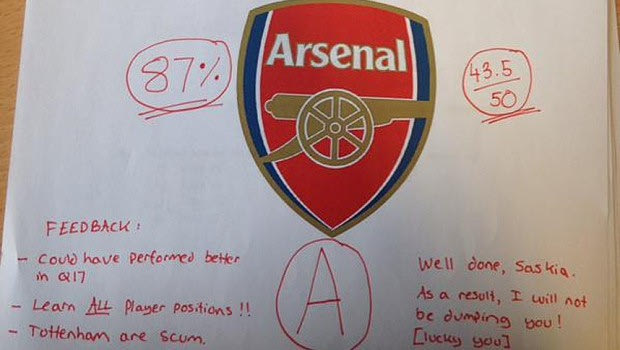 87%
Arsenal
43.5
50
FEEDBACK:
- Could have performed better
in Q17
- Learn ALL player positions!!
- Tottenham are scum.
A
Well done, Saskia.
As a result, I will not
be dumping you!
[lucky you]